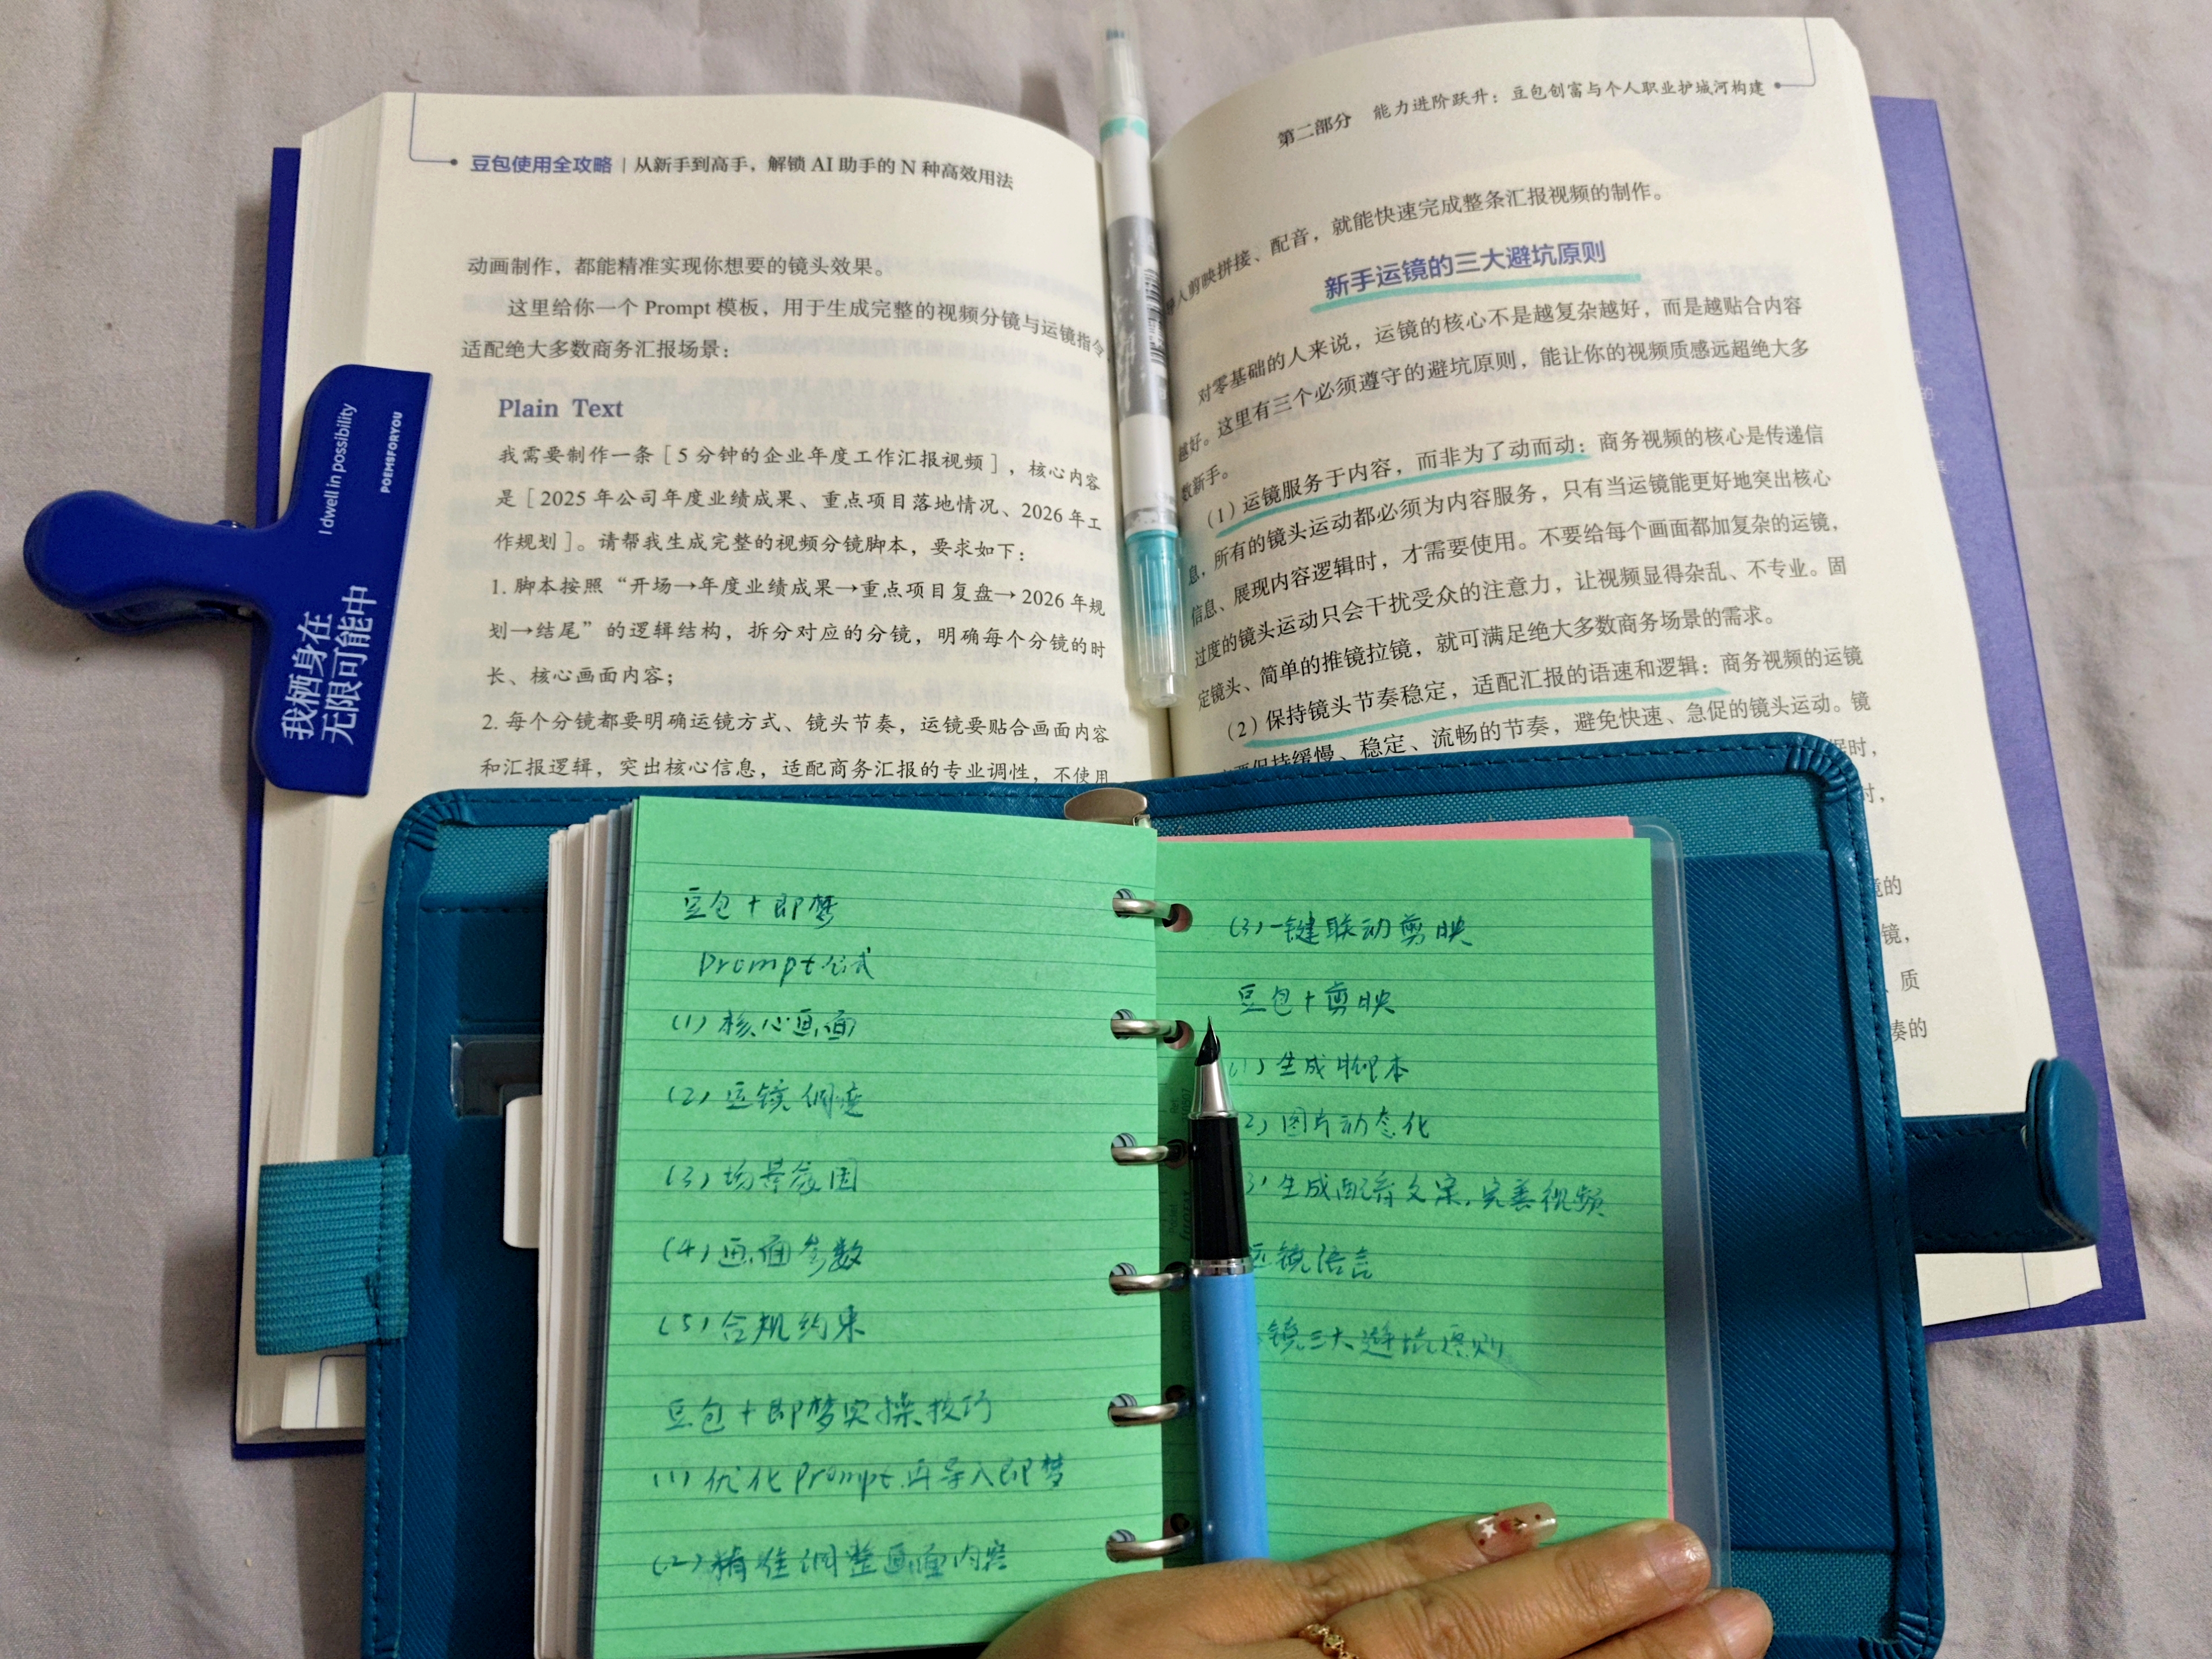 豆包使用全攻略 | 从新手到高手，解锁 AI 助手的 N 种高效用法
动画制作，都能精准实现你想要的镜头效果。
这里给你一个 Prompt 模板，用于生成完整的视频分镜与运镜指令，
适配绝大多数商务汇报场景：
Plain Text
我需要制作一条［5 分钟的企业年度工作汇报视频］，核心内容
是［2025 年公司年度业绩成果、重点项目落地情况、2026 年工
作规划］。请帮我生成完整的视频分镜脚本，要求如下：
1. 脚本按照“开场→年度业绩成果→重点项目复盘→2026 年规
划→结尾”的逻辑结构，拆分对应的分镜，明确每个分镜的时
长、核心画面内容；
2. 每个分镜都要明确运镜方式、镜头节奏，运镜要贴合画面内容
和汇报逻辑，突出核心信息，适配商务汇报的专业调性，不使用
第二部分 能力进阶跃升：豆包创富与个人职业护城河构建
入剪映拼接、配音，就能快速完成整条汇报视频的制作。
新手运镜的三大避坑原则
对零基础的人来说，运镜的核心不是越复杂越好，而是越贴合内容
越好。这里有三个必须遵守的避坑原则，能让你的视频质感远超绝大多
数新手。
（1）运镜服务于内容，而非为了动而动：商务视频的核心是传递信
息，所有的镜头运动都必须为内容服务，只有当运镜能更好地突出核心
信息、展现内容逻辑时，才需要使用。不要给每个画面都加复杂的运镜，
过度的镜头运动只会干扰受众的注意力，让视频显得杂乱、不专业。固
定镜头、简单的推镜拉镜，就可满足绝大多数商务场景的需求。
（2）保持镜头节奏稳定，适配汇报的语速和逻辑：商务视频的运镜
要保持缓慢、稳定、流畅的节奏，避免快速、急促的镜头运动。镜
时，
镜，
质
奏的
I dwell in possibility
POEMSFORYOU
我栖身在
无限可能中
豆包＋即梦
Prompt公式
(1) 核心画面
(2) 运镜调度
(3) 场景氛围
(4) 画面参数
(5) 合规约束
豆包＋即梦实操技巧
(1) 优化Prompt,再导入即梦
(2) 精准调整画面内容
(3) 一键联动剪映
豆包＋剪映
1) 生成脚本
2) 图片动态化
3) 生成配音文案,完善视频
运镜语言
镜三大避坑原则